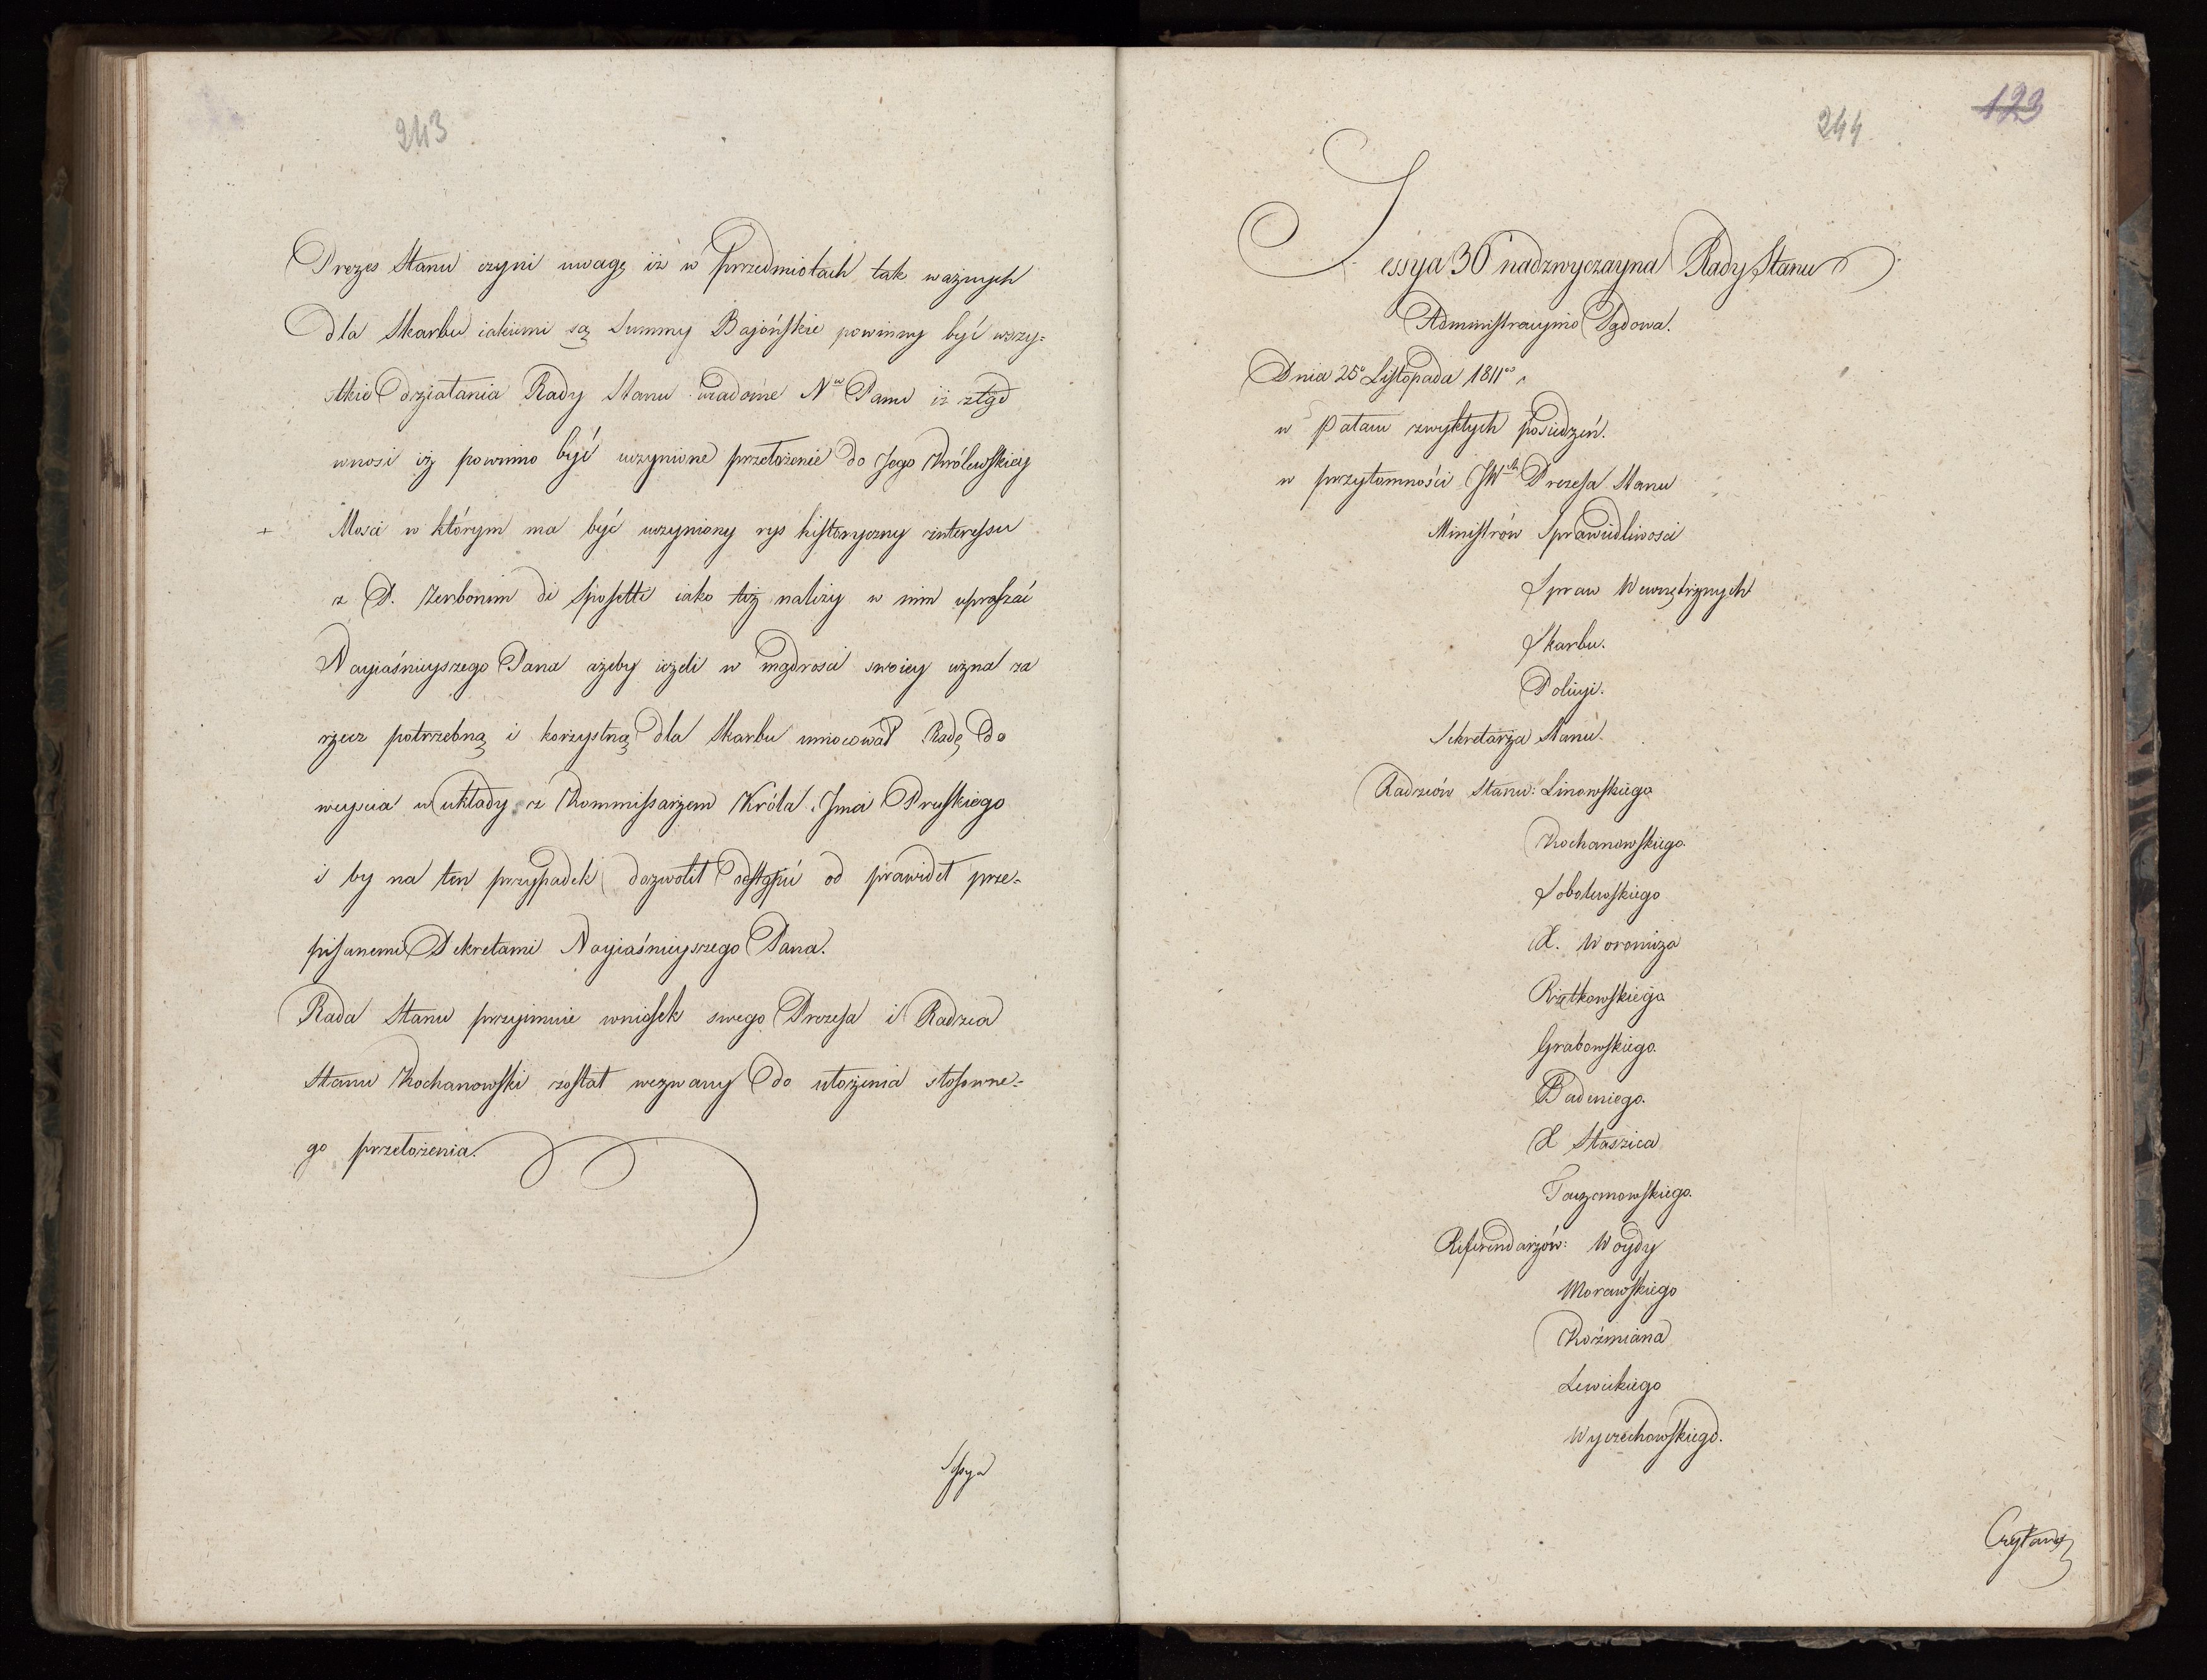 243
Prezes Stanu czyni uwagę iż w Przedmiotach tak ważnych
dla Skarbu iakiemi są Summy Bajońskie powinny być wszy=
stkie działania Rady Stanu wiadome Nu Panu iż ztąd
wnosi iż powinno być uczynione przełożenie do Jego Królewskiey
+ Mości w którym ma być uczyniony rys historyczny interessu
z P. Zerbonim di Sposetti iako też należy w nim upraszać
Nayiaśnieyszego Pana ażeby ieżeli w mądrości swoiey uzna za
rzecz potrzebną i korzystną dla Skarbu umocował Radę do
weyścia w układy z Kommissarzem Króla Jmci Pruskiego
i by na ten przypadek dozwolił odstąpić od prawideł prze=
pisanemi Dekretami Nayiaśnieyszego Pana.
Rada Stanu przyimuie wniosek swego Prezesa i Radzca
Stanu Kochanowski został wezwany do ułożenia stosowne=
go przełożenia.
Sessya
244 123
Sessya 36 nadzwyczayna Rady Stanu
Administracyino Sądowa.
Dnia 25o Listopada 1811go r.
w Pałacu zwykłych posiedzeń.
w przytomności JWgo Prezesa Stanu
Ministrów Sprawiedliwości
Spraw Wewnętrznych
Skarbu.
Policyi.
Sekretarza Stanu.
Radzców Stanu: Linowskiego
Kochanowskiego.
Sobolewskiego
X. Woronicza
Rzętkowskiego
Grabowskiego.
Badeniego.
X Staszica
Taczanowskiego.
Referendarzów: Woydy
Morawskiego
Koźmiana
Lewickiego
Wyczechowskiego.
Czytano